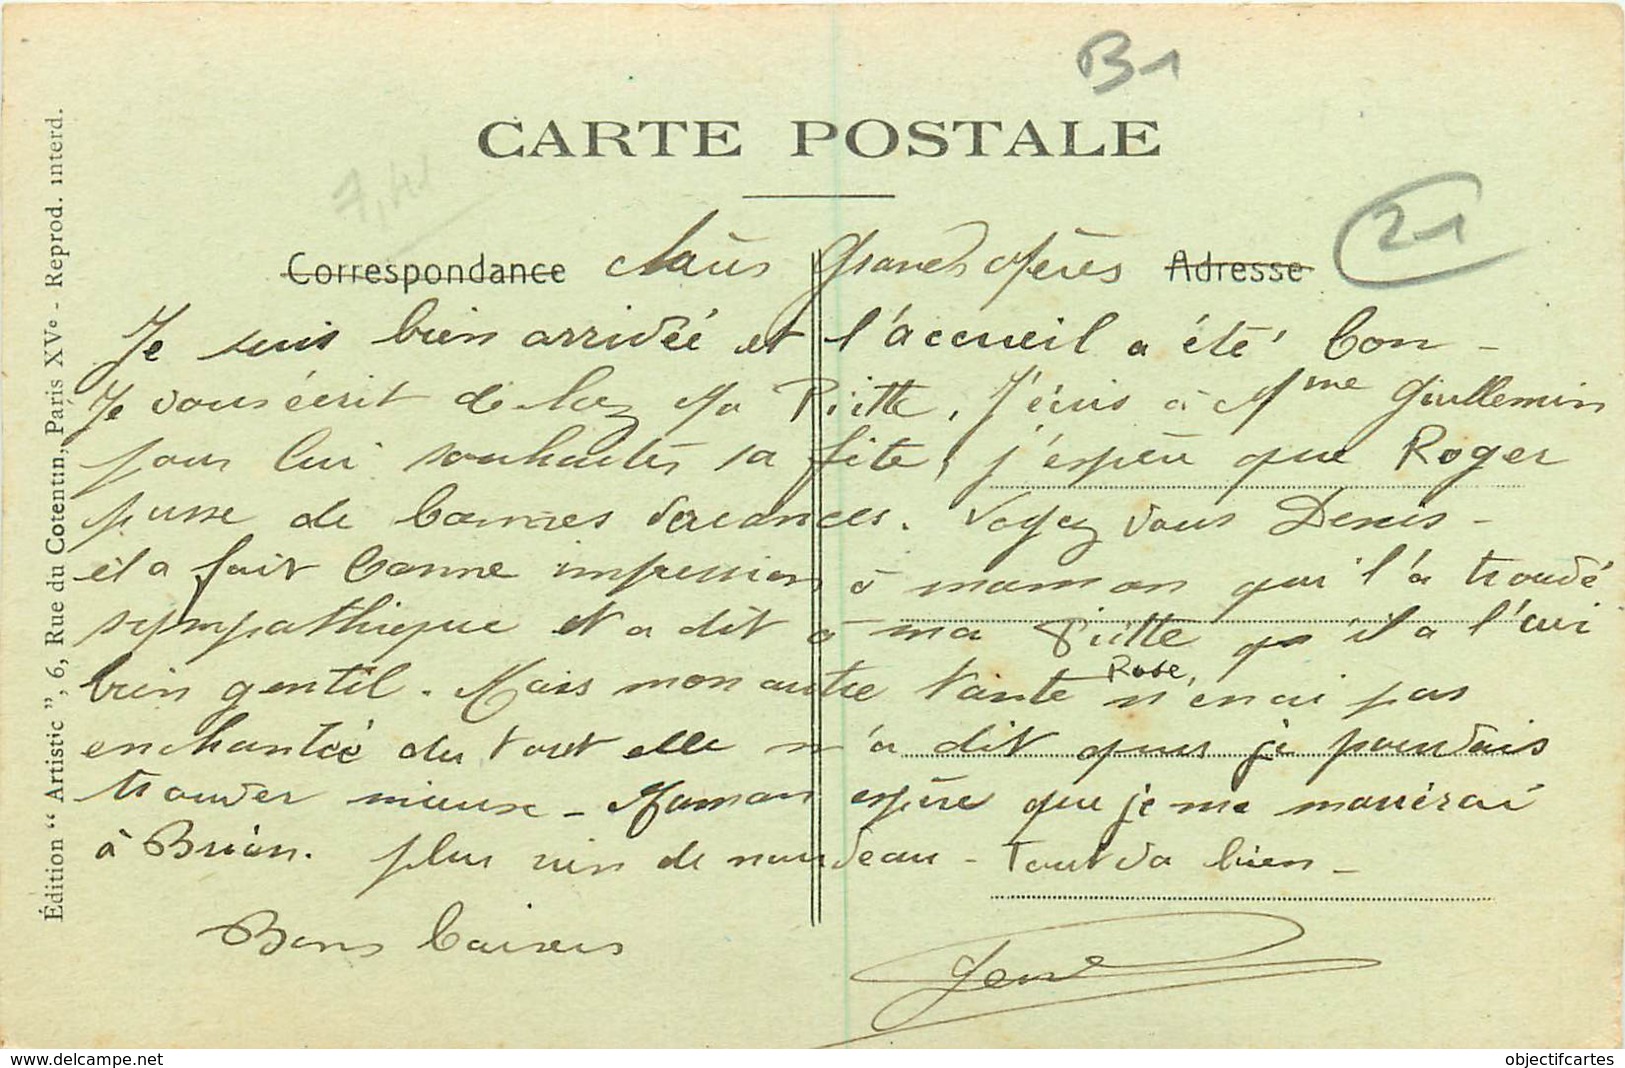 B1
CARTE POSTALE
21
Correspondance Chers Grands Pères Adresse
Je suis bien arrivée et l'accueil a été bon -
Je vous écrit de chez Ma Piitte, J'écris à Mme Guillemin
pour lui souhaiter sa fête, j'espère que Roger
passe de bonnes vacances. Voyez vous Denis -
il a fait bonne impression à maman qui l'a trouvé
sympathique et a dit à ma Piitte qu'il a l'air
bien gentil. Mais mon autre tante Rose, n'en ai pas
enchantée du tout elle m'a dit que je pouvais
trouver mieux - Maman espère que je me marierai
à Brion. plus rien de nouveau - Tout va bien -
Bons baisers
Édition “ Artistic ”, 6, Rue du Cotentin, Paris XVe - Reprod. interd.
www.delcampe.net
objectifcartes